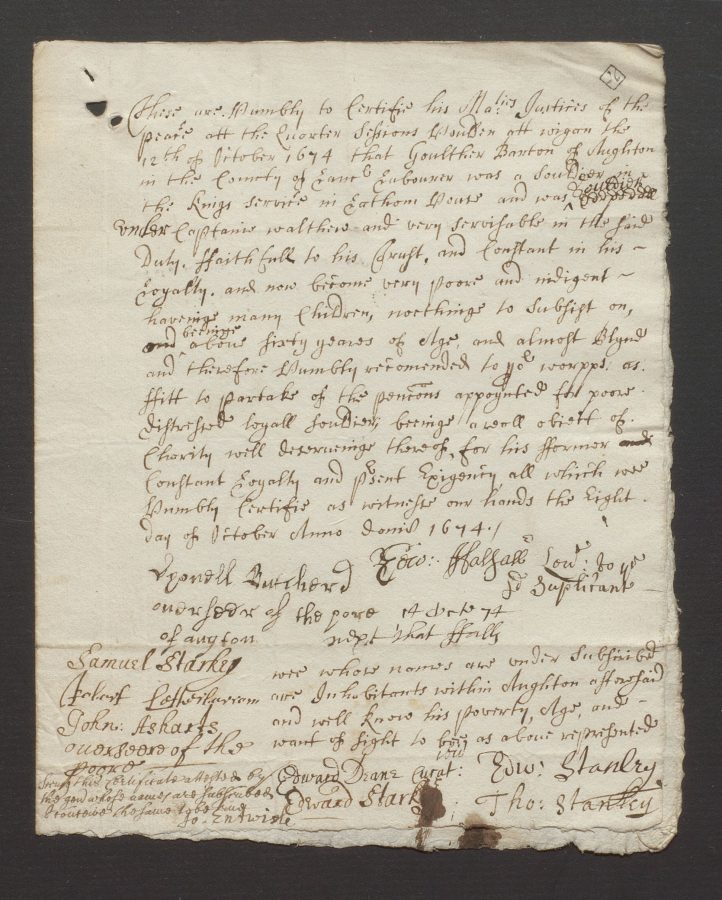 These are Humbly to Certifie his Maties Justices of the
peace att the Quarter Sessions Houlden att wigan the
12th of October 1674 that Goulther Barton of Aughton
in the County of Lancr Labourer was a Souldier in
the Kings Service in Lathom House and was
under Captaine walthew and very servisable in the said
Duty, ffaithfull to his Trust, and Constant in his
Loyalty, and now become very poore and indigent
haveinge many Children, noethinge to Subsist on,
and beeinge above sixty yeares of Age, and almost Blynd
and therefore Humbly recomended to yor worpps: as
ffitt to partake of the pencons appoynted for poore
distressed loyall Souldiers beeinge a reall obiect of
Charity well deserveinge thereof, for his fformer and
Constant Loyalty and psent Exigency all which wee
Humbly Certifie as witnesse our hands the Eight
day of October Anno domi 1674./
Edw: Halsall
Butcherd
overseer of the pore 14 Octr 74
sd Suplicant
of aughton next that ffalls
Samuel Starkey
wee whose names are under Subscribed
are Inhabitants within Aughton afforesaid
John: Asharts
and well know his poverty, Age, and
overseere of the
want of sight to bee as above represented
poore
Edward Deane Curat: Edw: Stanley
Seeing this certificate attested by
the gen whose names are subscribed
Edward Starkey Tho: Stanley
I conceive the same to be true
Jo: Entwisle